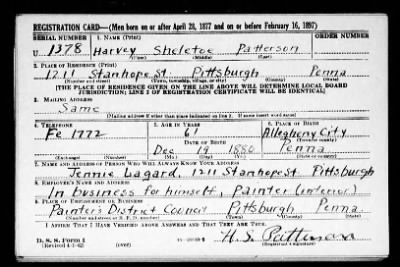 REGISTRATION CARD—(Men born on or after April 28, 1877 and on or before February 16, 1897)
SERIAL NUMBER 1. NAME (Print) ORDER NUMBER
U 1378 Harvey Sheletoe Patterson
(First) (Middle) (Last)
2. PLACE OF RESIDENCE (Print)
1211 Stanhope St Pittsburgh Penna
(Number and street) (Town, township, village, or city) (County) (State)
[THE PLACE OF RESIDENCE GIVEN ON THE LINE ABOVE WILL DETERMINE LOCAL BOARD
JURISDICTION; LINE 2 OF REGISTRATION CERTIFICATE WILL BE IDENTICAL]
3. MAILING ADDRESS
Same
[Mailing address if other than place indicated on line 2. If same insert word same]
4. TELEPHONE 5. AGE IN YEARS 6. PLACE OF BIRTH
Fe 1772 61 Allegheny City
DATE OF BIRTH (Town or county)
Dec 19 1880 Penna
(Exchange) (Number) (Mo.) (Day) (Yr.) (State or country)
7. NAME AND ADDRESS OF PERSON WHO WILL ALWAYS KNOW YOUR ADDRESS
Jennie Lagard, 1211 Stanhope St Pittsburgh
8. EMPLOYER'S NAME AND ADDRESS
In business for himself, Painter (interior)
9. PLACE OF EMPLOYMENT OR BUSINESS
Painter's District Council Pittsburgh Penna.
(Number and street or R. F. D. number) (Town) (County) (State)
I AFFIRM THAT I HAVE VERIFIED ABOVE ANSWERS AND THAT THEY ARE TRUE.
H. S. Patterson
D. S. S. Form 1
(Revised 4-1-42) (over)